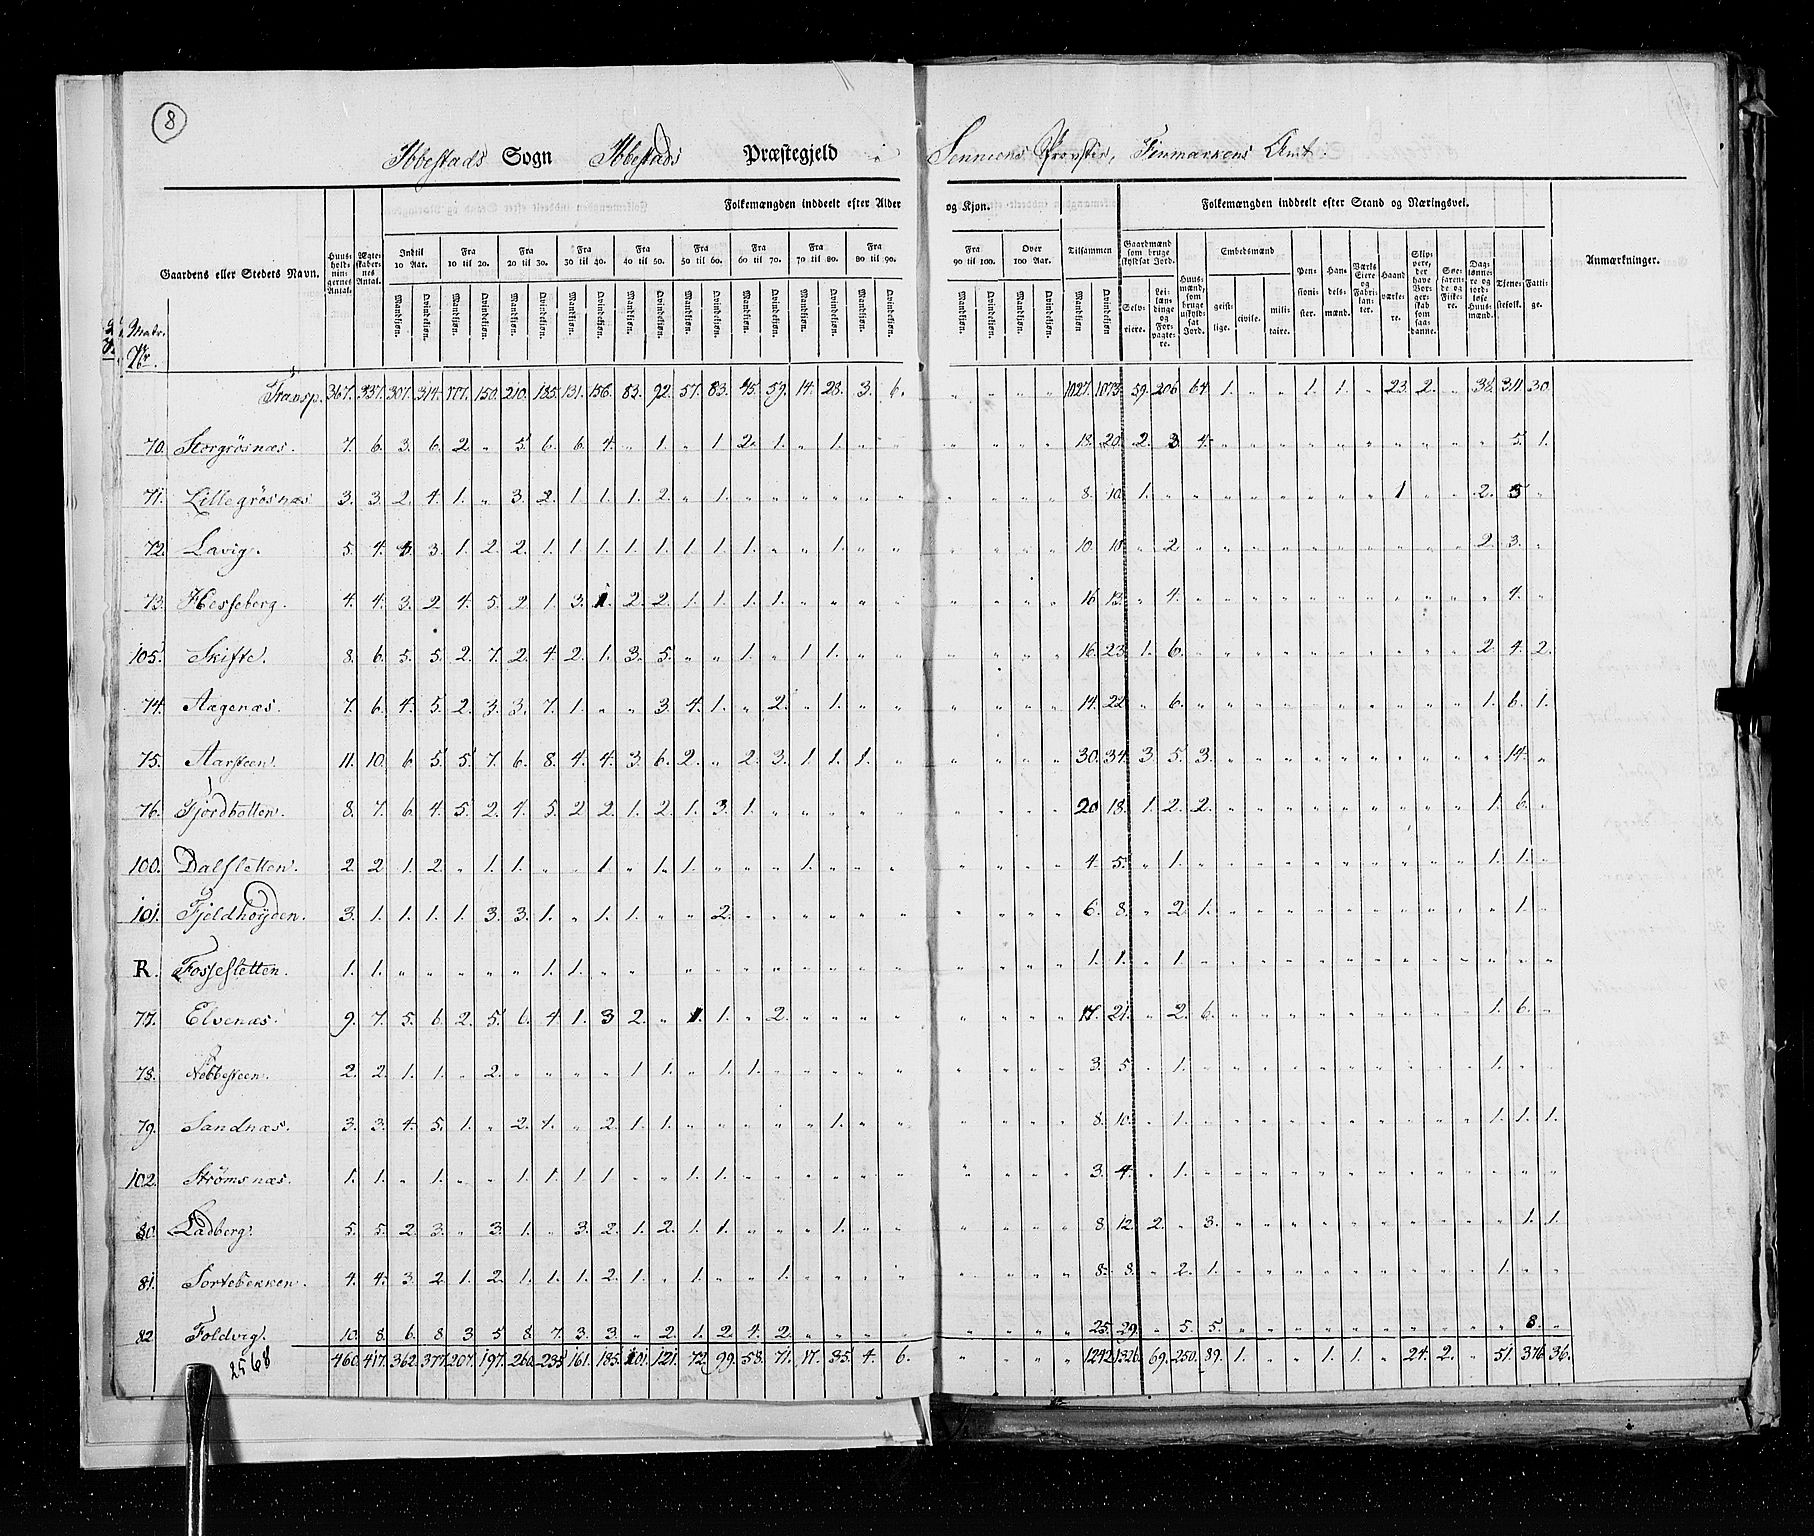 8
Ibbestads Sogn Ibbestads Præstegjeld Senniens Provstie, Finmarkens Amt.
Folkemængden inddeelt efter Alder og Kjøn. Folkemængden inddeelt efter Stand og Næringsvei.
Matr. No. Gaardens eller Stedets Navn. Huusholdningernes Antal. Ægteskabernes Antal. Indtil 10 Aar. Fra 10 til 20. Fra 20 til 30. Fra 30 til 40. Fra 40 til 50. Fra 50 til 60. Fra 60 til 70. Fra 70 til 80. Fra 80 til 90. Fra 90 til 100. Over 100 Aar. Tilsammen Gaardmænd som bruge skyldsat Jord. Embedsmænd Anmærkninger.
Mandkjøn. Qvindekjøn. Mandkjøn. Qvindekjøn. Mandkjøn. Qvindekjøn. Mandkjøn. Qvindekjøn. Mandkjøn. Qvindekjøn. Mandkjøn. Qvindekjøn. Mandkjøn. Qvindekjøn. Mandkjøn. Qvindekjøn. Mandkjøn. Qvindekjøn. Mandkjøn. Qvindekjøn. Mandkjøn. Qvindekjøn. Mandkjøn. Qvindekjøn. Selveiere. Leilændinge og Forpagtere. Huusmænd, som bruge uskyldsat Jord. geistlige. civile. militaire. Pensionister. Handelsmænd. Værks Eiere og Fabrikanter. Haandværkere. Skippere, der have Borgerskab som saadanne. Søefarende og Fiskere. Daglønnere og jordløse Huusmænd. Tjenestefolk. Fattige.
Transp. 367. 337. 307. 314. 177. 150. 210. 185. 131. 156. 83. 92. 57. 83. 45. 59. 14. 28. 3. 6. " " " " 1027. 1073. 59. 206. 64. 1. " " 1. 1. " 23. 2. " 38. 311. 30.
70. Storgrösnæs. 7. 6. 3. 6. 2. " 5. 6. 6. 4. " 1. " 1. 2. 1. " 1. " " " " " " 18. 20. 2. 3. 4. " " " " " " " " " " 5. 1.
71. Lillegrösnæs 3. 3. 2. 4. 1. " 3. 2. 1. 1. 1. 2. " 1. " " " " " " " " " " 8. 10. 1. " " " " " " " " 1 " " 2. 5 "
72. Lavig. 5. 4. 1. 3. 1. 2. 2. 1. 1. 1. 1. 1. 1. 1. 1. " " 1. " " " " " " 10. " 2. " " " " " " " " " " 2. 3. "
73. Hesseberg. 4. 4. 3. 2. 4. 5. 2. 1. 3. 1. 2. 2. 1. 1. 1. 1. " " " " " " " " 16. 13. " 4. " " " " " " " " " " " 4. "
105. Skifte. 8. 6. 5. 5. 2. 7. 2. 4. 2. 1. 3. 5. " " 1. " 1. 1. " " " " " " 16. 23. 1. 6. " " " " " " " " " " 2. 4. 2.
74. Aagenæs. 7. 6. 4. 5. 2. 3. 3. 7. 1. " " 3. 4. 1. " 2. " 1. " " " " " " 14. 22. " 6. " " " " " " " " " " 1. 6. 1.
75. Aarsteen. 11. 10. 6. 5. 5. 7. 6. 8. 4. 4. 3. 6. 2. " 2. 3. 1. 1. 1. " " " " " 30. 34. 3. 5. 3. " " " " " " " " " " 14. "
76. Fjordbotten. 8. 7. 6. 4. 5. 2. 4. 5. 2. 2. 1. 2. 1. 3. 1. " " " " " " " " " 20 18. 1. 2. 2. " " " " " " " " " 1. 6. "
100. Dalsletten. 2. 2. 1. 2. " 1. 1. " " 1. " 1. 1. " " " 1. " " " " " " " 4. 5. " 1. " " " " " " " " " " 1. 1. "
101. Fjeldhøyden. 3. 1. 1. 1. 1. 3. 3. 1. " 1. 1. " " 2. " " " " " " " " " " 6. 8. " 2. 1. " " " " " " " " " " 1. "
R. Fossesletten. 1. 1. " " " " " 1. 1. " " " " " " " " " " " " " " " 1. 1. " 1. " " " " " " " " " " " " "
77. Elvenæs. 9. 7. 5. 6. 2. 5. 6. 4. 1. 3 2. " 1. 1. " 2. " " " " " " " " 17. 21. " 2. 6. " " " " " " " " " 1. 6. "
78. 2. 2. 1. 1. " 2. " " " " 1. 1. " 1. 1. " " " " " " " " " 3. 5. " 1. " " " " " " " " " " 1. " "
79. Sandnæs. 3. 3. 4. 5. 1. " 2. 1. " 2. 1. 1. " " " " " 1. " " " " " " 8. 10. " 1. " " " " " " " " " " 1. 1. 1.
102. Strömsnæs. 1. 1. " 1. " " 1. 1. 1. 1. " " 1. 1. " " " " " " " " " " 3. 4. " 1. " " " " " " " " " " " " "
80. Ladberg. 5. 5. 2. 3. " 3. 1. " 3. 2. 1. 2. 1. 1. " " " 1. " " " " " " 8. 12. 2. " 3. " " " " " " " " " " 1. 1.
81. Sortebekken. 4. 4. 3. 2. 1. 2. 1. 1. 1. 2. 1. " 1. " " 1. " " " " " " " " 8. 8. " 2. 1. " " " " " " " " " 1. " "
82 Foldvig. 10. 8. 6. 8. 3 5 8. 7. 3. 3. " 2. 1. 2. 4. 2. " " " " " " " " 25. 29. " 5. 5. " " " " " " " " " " 8. "
2568 460. 417. 362. 377. 207. 197. 260. 235. 161. 185. 101. 121. 72. 99. 58. 71. 17. 35. 4. 6. " " " " 1242. 1326. 69. 250. 89. 1. " " 1. 1. " 24. 2. " 51. 376. 36.